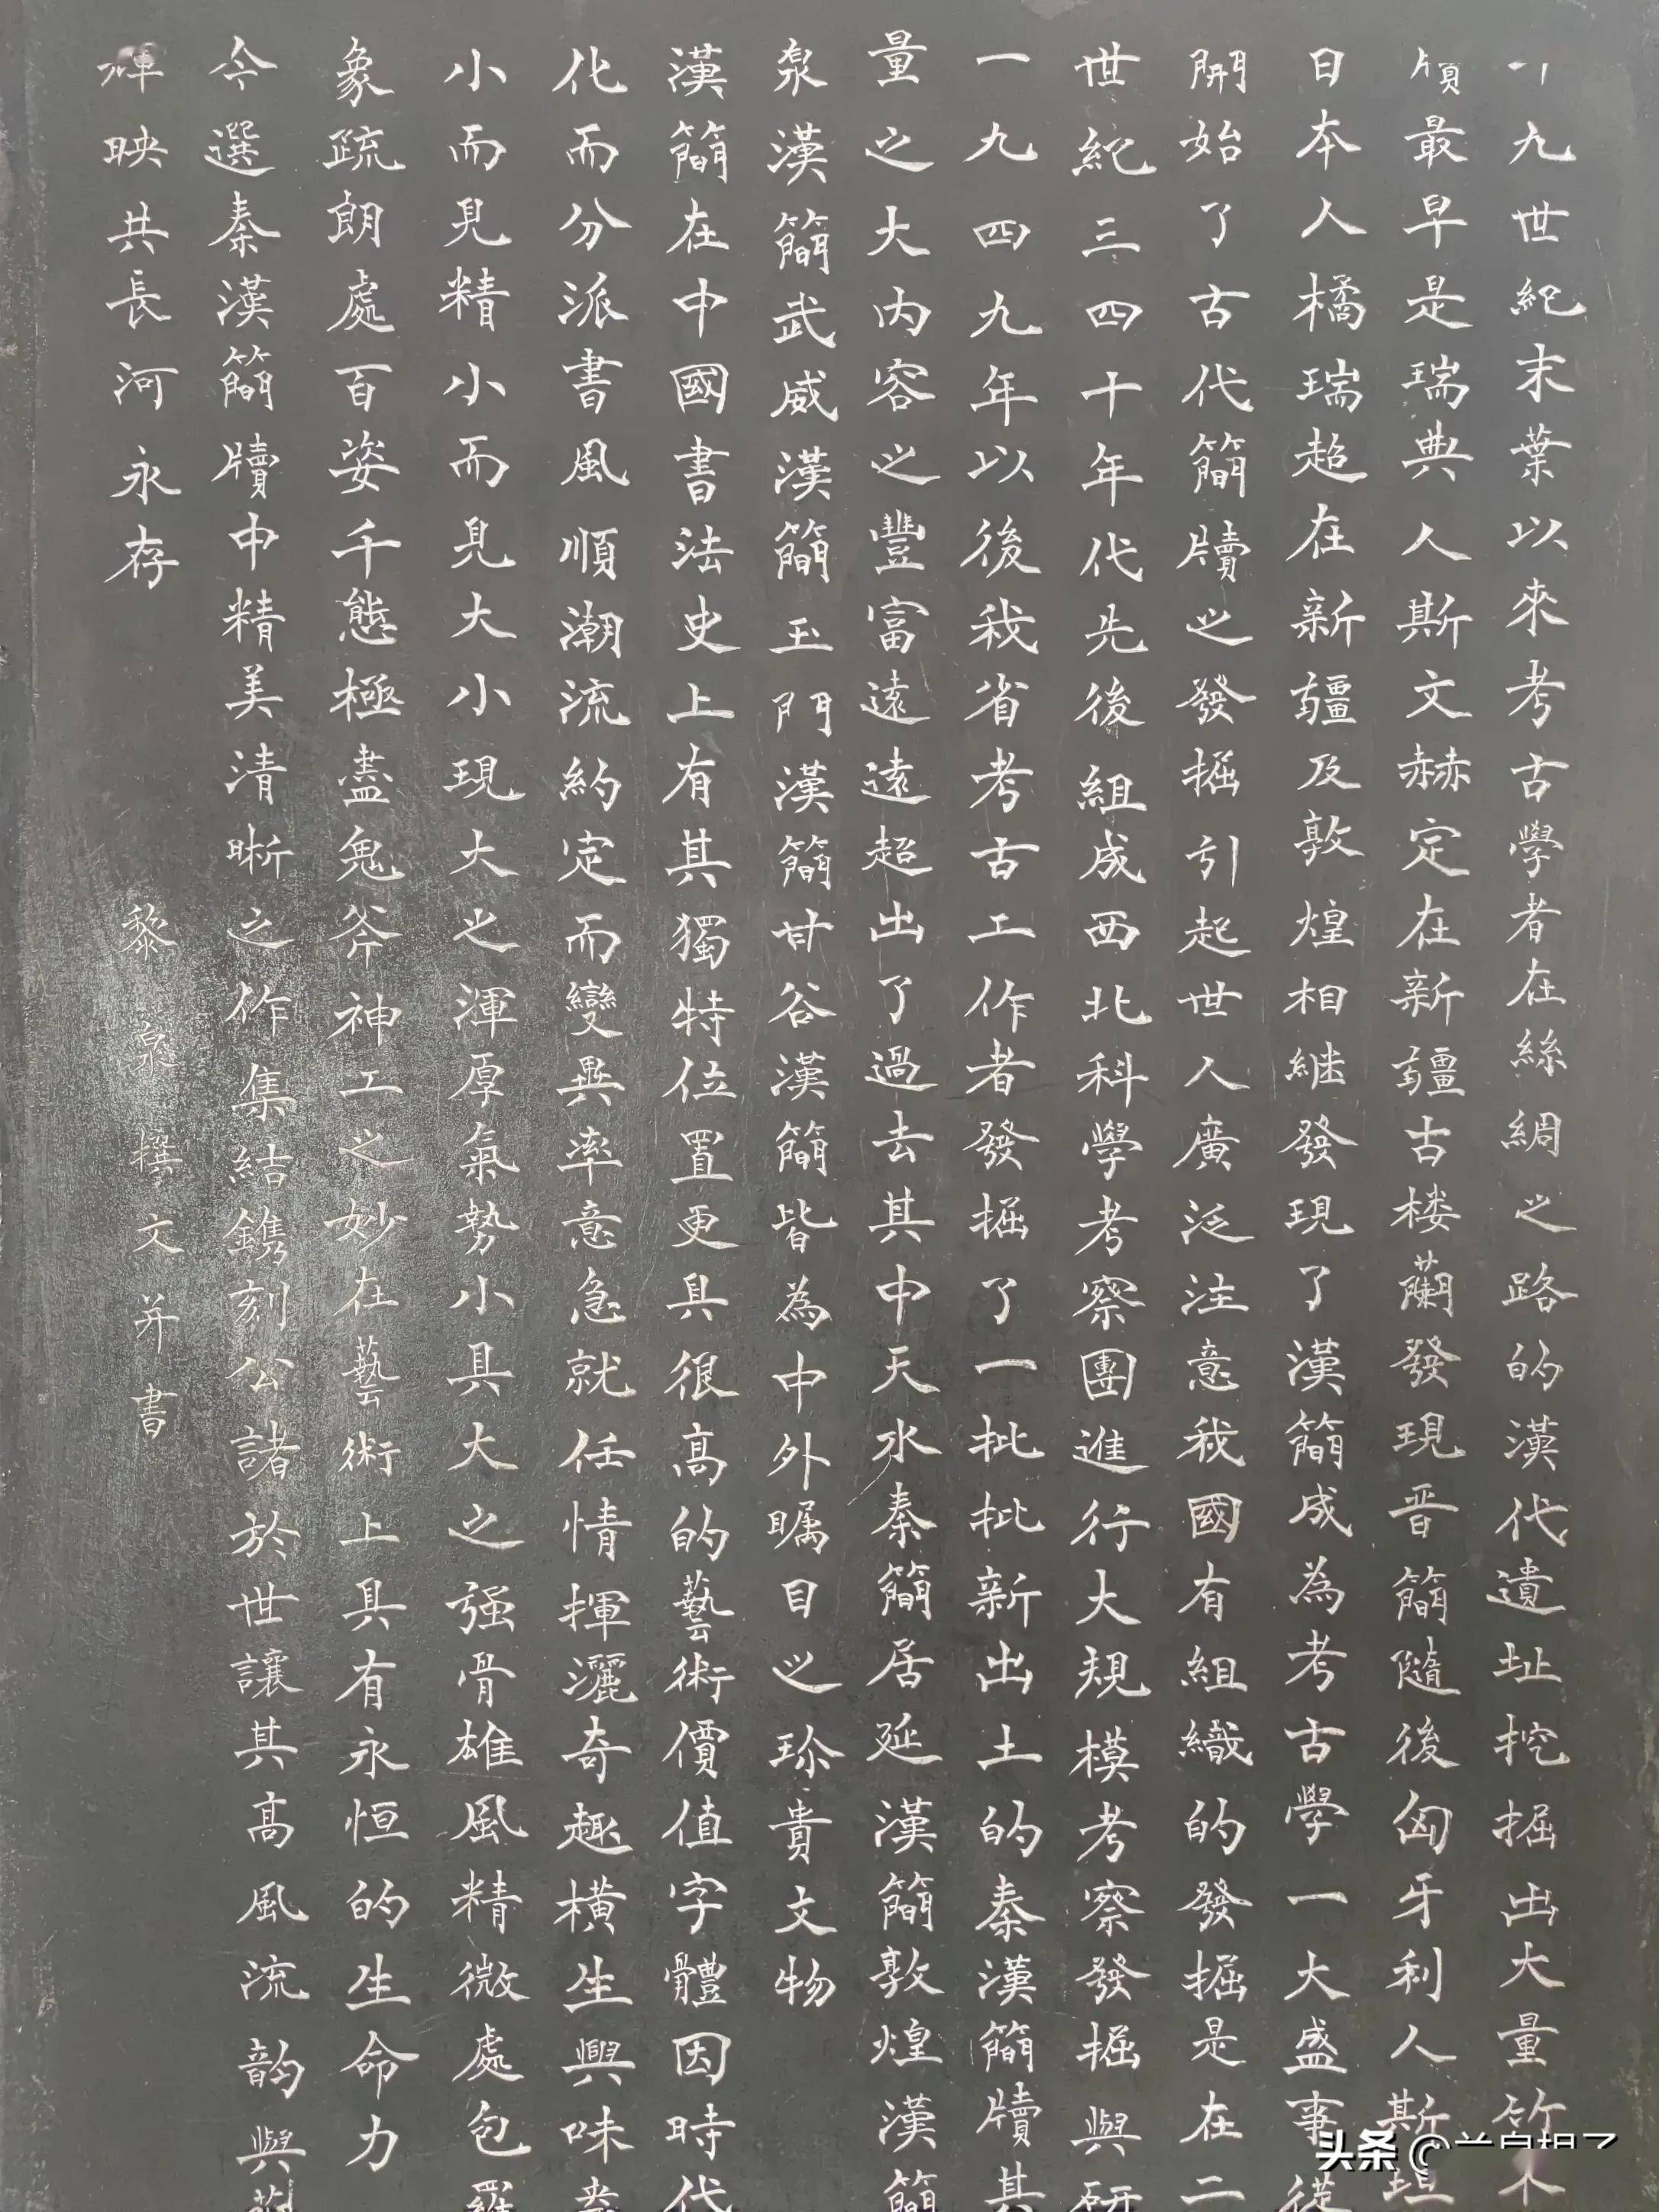 十九世紀末葉以來考古學者在絲綢之路的漢代遺址挖掘出大量竹木
牘最早是瑞典人斯文赫定在新疆古楼蘭發現晋簡隨後匈牙利人斯坦
日本人橘瑞超在新疆及敦煌相継發現了漢簡成為考古學一大盛事從
開始了古代簡牘之發掘引起世人廣泛注意我國有組織的發掘是在二
世紀三四十年代先後組成西北科學考察團進行大規模考察發掘與研
一九四九年以後我省考古工作者發掘了一批批新出土的秦漢簡牘其
量之大内容之豐富遠遠超出了過去其中天水秦簡居延漢簡敦煌漢簡
泉漢簡武威漢簡玉門漢簡甘谷漢簡皆為中外矚目之珍貴文物
漢簡在中國書法史上有其獨特位置更具很高的藝術價值字體因時代
化而分派書風順潮流約定而變異率意急就任情揮灑奇趣橫生興味盎
小而見精小而見大小現大之渾厚氣勢小具大之强骨雄風精微處包羅
象疏朗處百姿千態極盡鬼斧神工之妙在藝術上具有永恒的生命力
今選秦漢簡牘中精美清晰之作集結鐫刻公諸於世讓其高風流韵與
輝映共長河永存
黎泉撰文并書
头条@